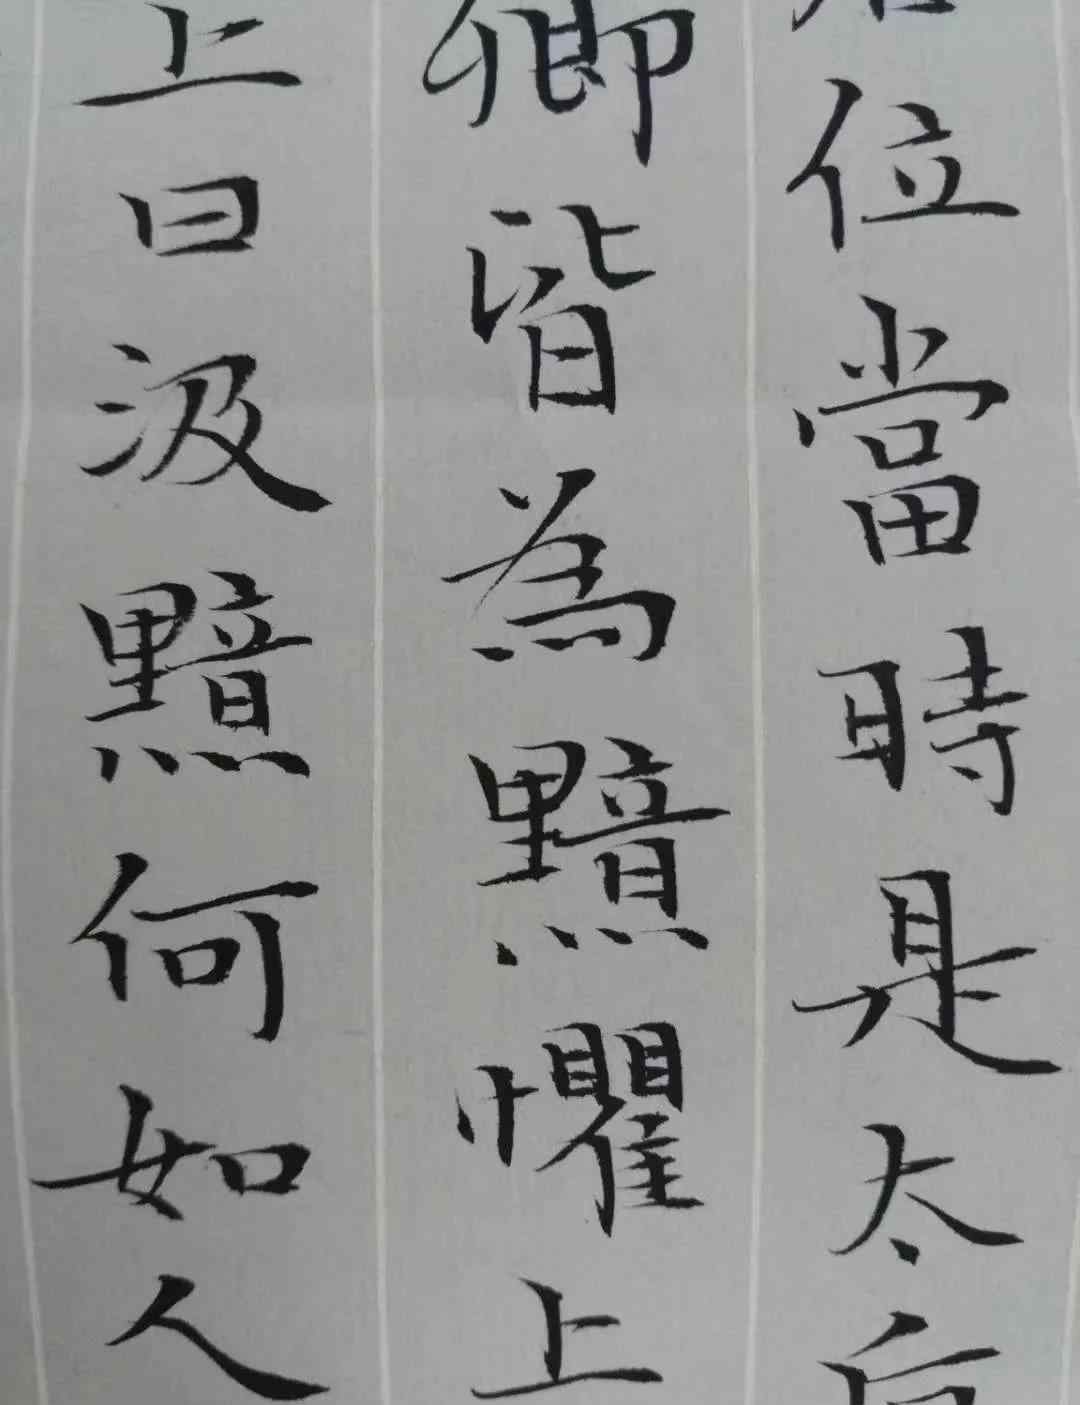 位當時是太
卿皆為黯懼上
上曰汲黯何如人